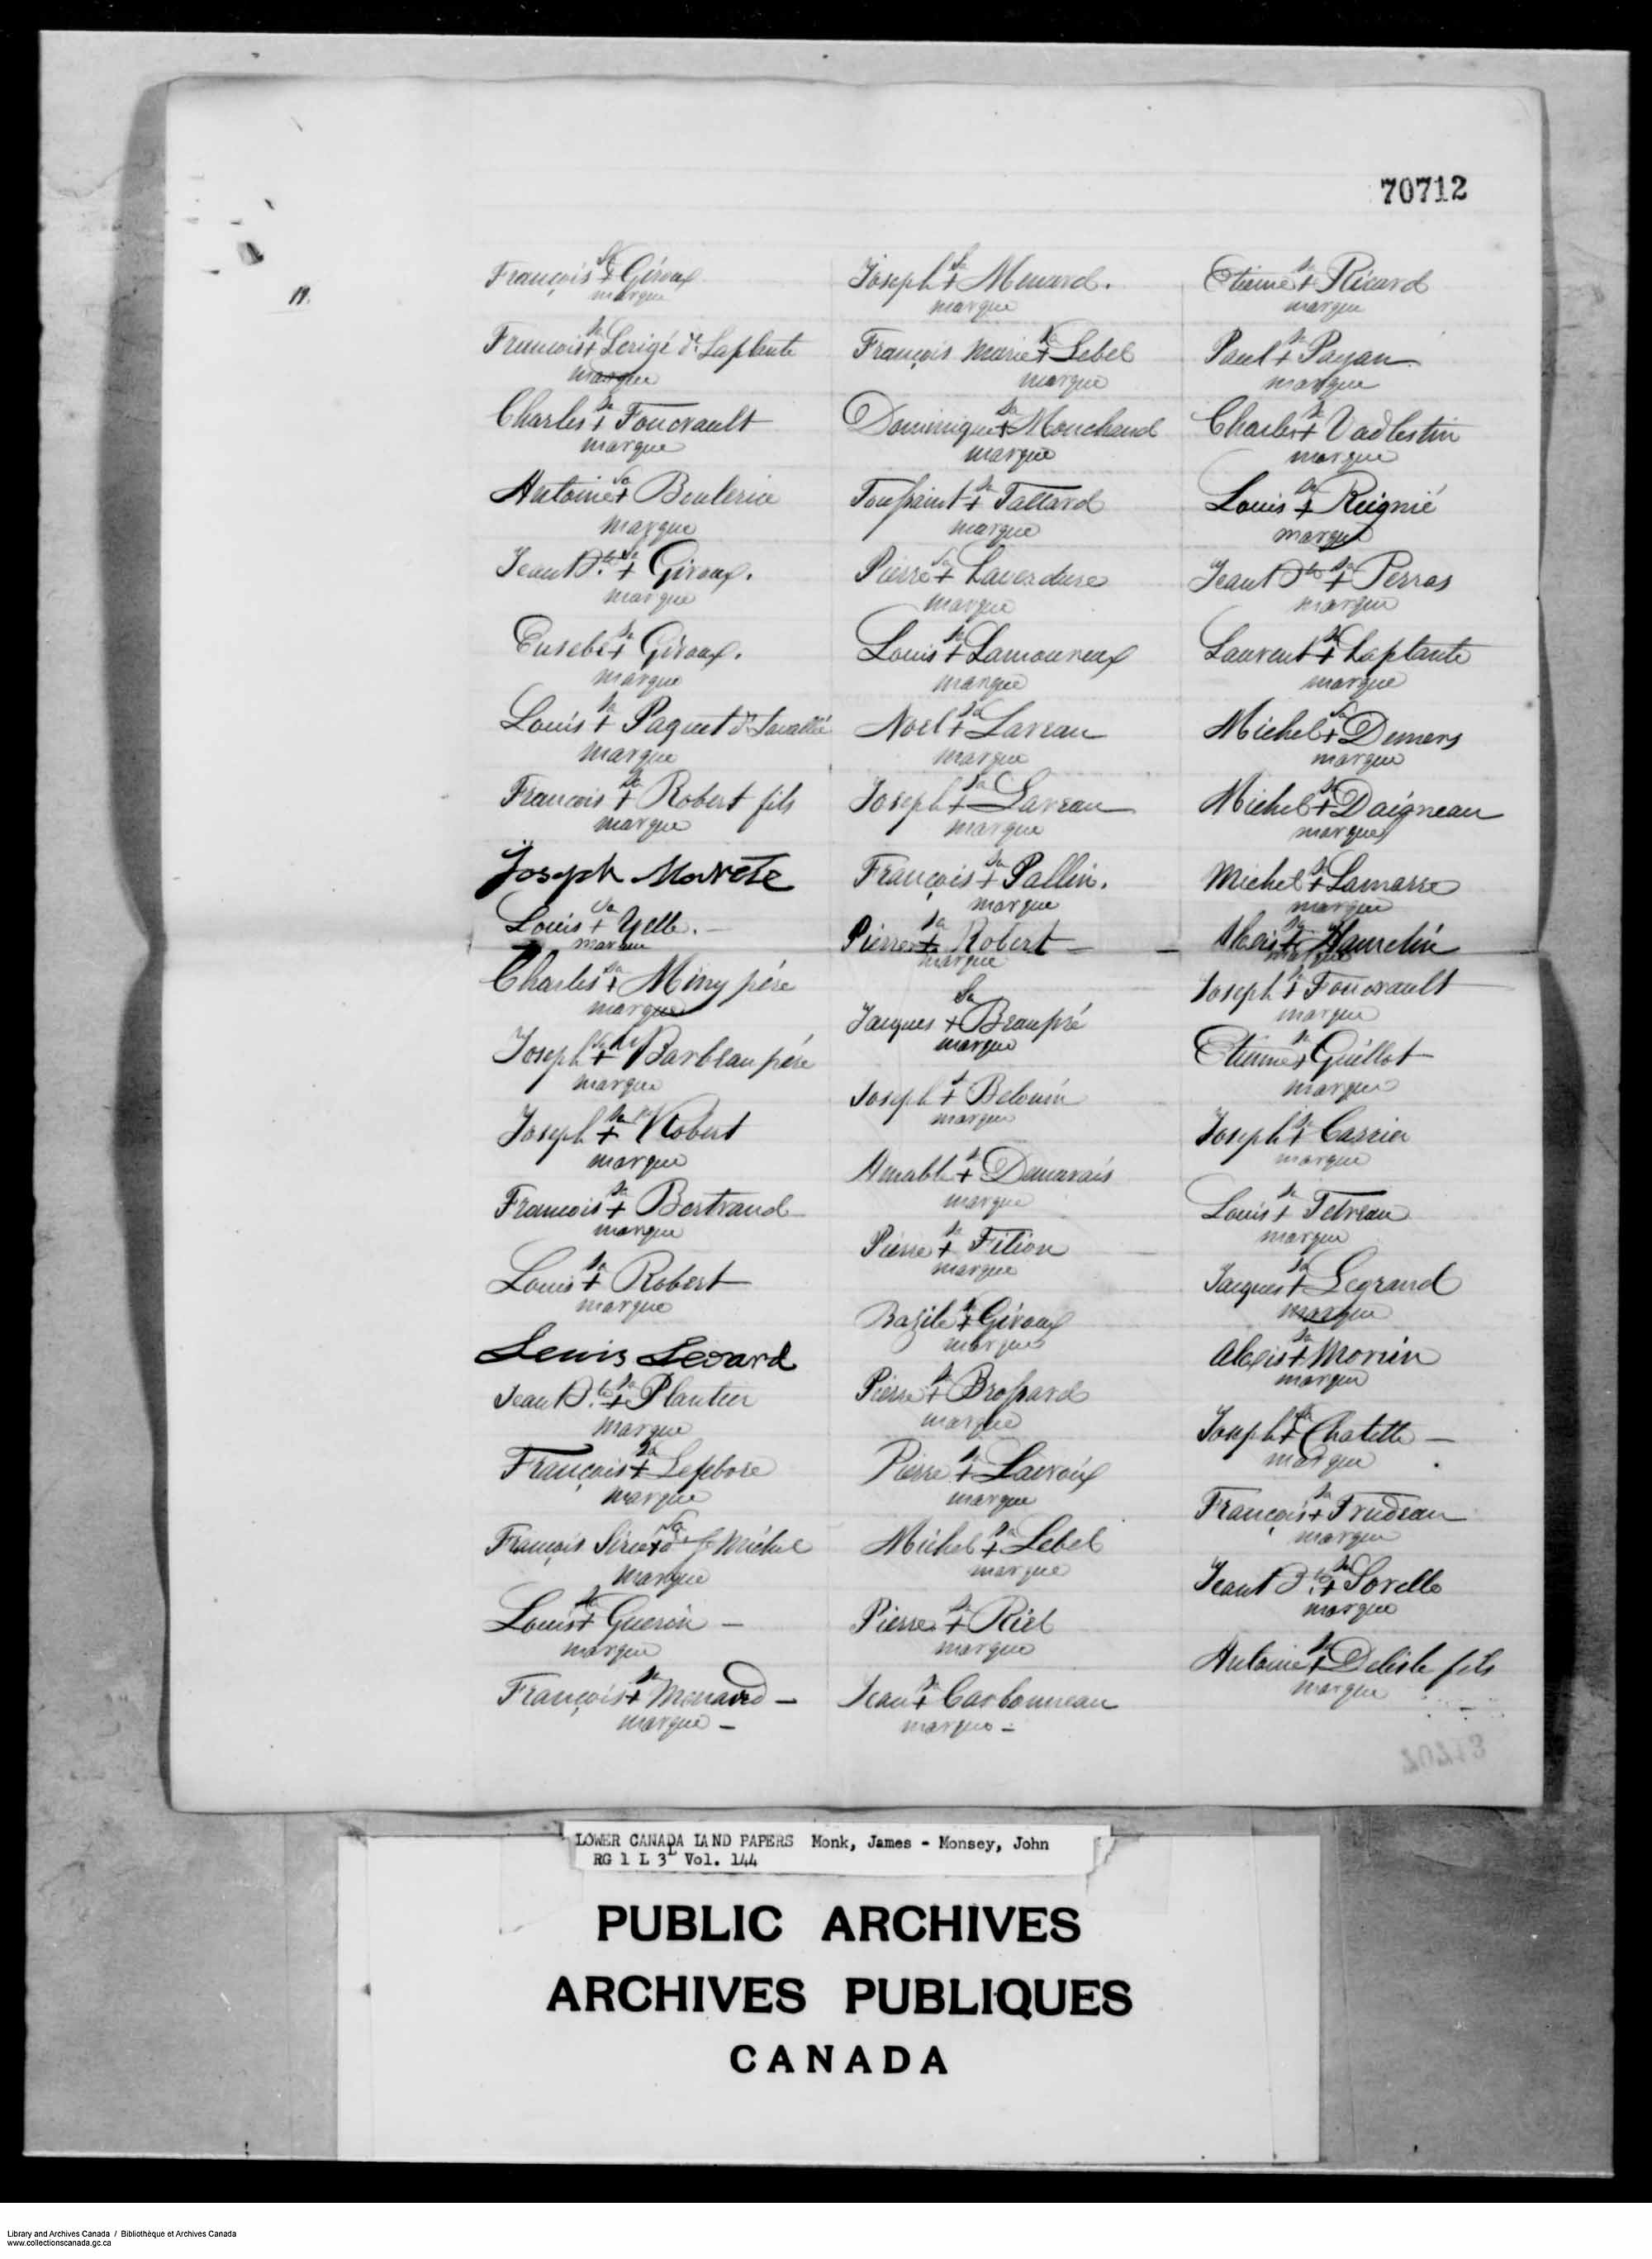 70712
19.
François Sa + Giroux
marque
Francois Sa + Lerigé dt. Laplante
marque
Charles Sa + Foucrault
marque
Antoine Sa + Boulerice
marque
Jean Bte. Sa + Giroux.
marque
Eusebe Sa + Giroux.
marque
Louis Sa + Paquet dt. Lavallée
marque
Francois Sa + Robert fils
marque
Joseph
Louis Sa + Yelle.
marque
Charles Sa + Miny père
marque
Joseph Sa + Barbeau père
marque
Joseph Sa + Robert
marque
Francois Sa + Bertrand
marque
Louis Sa + Robert
marque
Lewis
Jean Bte. Sa + Plantier
marque
François Sa + Lefebvre
marque
François Sa + St Michel
marque
Louis Sa + Guerin
marque
François Sa + Menard
marque
Joseph Sa + Menard.
marque
François Marie Sa + Lebel
marque
Dominique Sa + Mouchand
marque
Toussaint Sa + Tallard
marque
Pierre Sa + Laverdure
marque
Louis Sa + Lamoureux
marque
Noel Sa + Lareau
marque
Joseph Sa + Lareau
marque
François Sa + Pallin.
marque
Pierre Sa + Robert
marque
Jacques Sa + Beaupré
marque
Joseph Sa + Belouin
marque
Amable Sa + Demarais
marque
Pierre Sa + Filion
marque
Bazile Sa + Giroux
marque
Pierre Sa + Brossard
marque
Pierre Sa +
marque
Michel Sa + Lebel
marque
Pierre Sa + Riel
marque
Jean Sa + Carbonneau
marque
Etienne Sa + Ricard
marque
Paul Sa + Payan
marque
Charles Sa + Vadlestin
marque
Louis Sa + Reignié
marque
Jean Bte Sa + Perras
marque
Laurent Sa + Laplante
marque
Michel Sa + Demers
marque
Michel Sa + Daigneau
marque
Michel Sa + Lamarre
marque
Alexis Sa + Hamelin
marque
Joseph Sa + Foucrault
marque
Etienne Sa + Guillot
marque
Joseph Sa + Carrier
marque
Louis Sa + Tetreau
marque
Jacques Sa + Legrand
marque
Alexis Sa + Morin
marque
Joseph Sa + Chatelle
marque
François Sa + Trudeau
marque
Jean Bte. Sa + Sorelle
marque
Antoine Sa + Delisle fils
marque
LOWER CANADA LAND PAPERS Monk, James - Monsey, John
RG 1 L 3L Vol. 144
PUBLIC ARCHIVES
ARCHIVES PUBLIQUES
CANADA
Library and Archives Canada / Bibliothèque et Archives Canada
www.collectionscanada.gc.ca